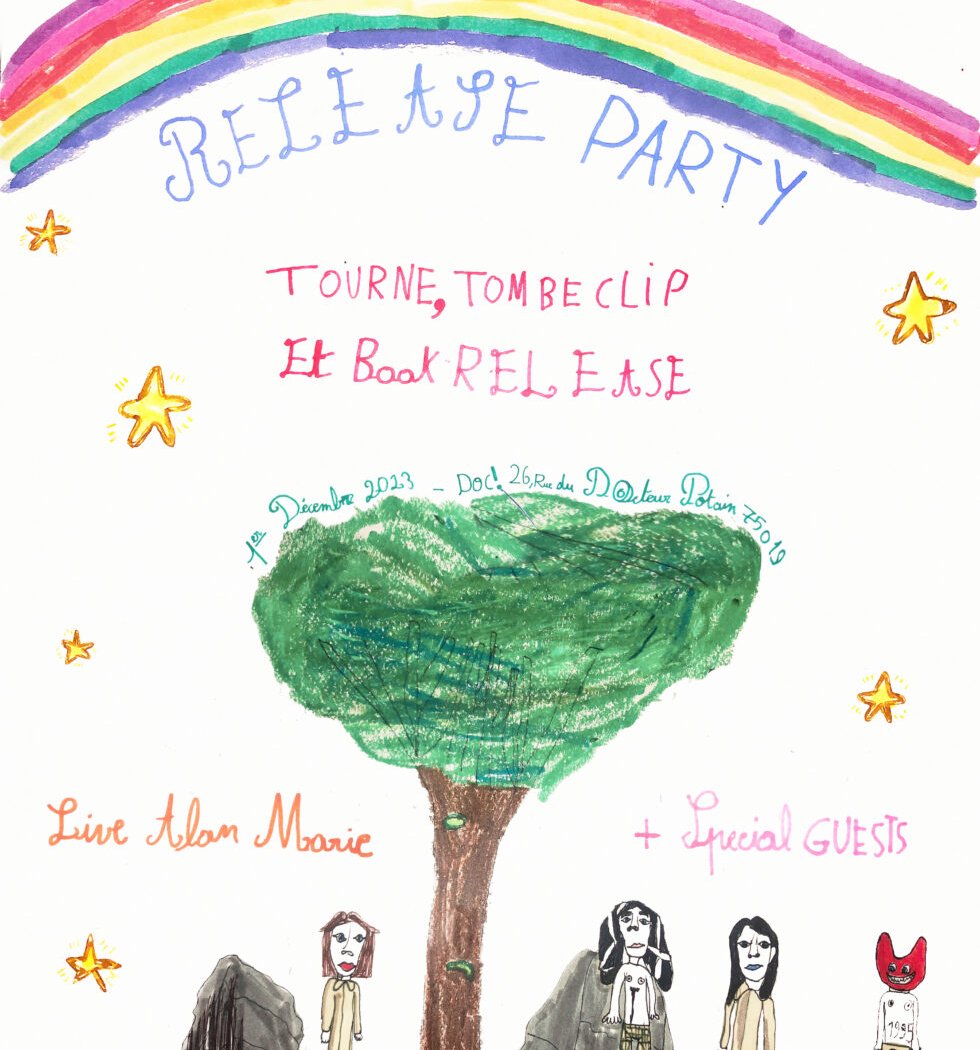 RELEASE PARTY
TOURNE, TOMBE CLiP
Et Book RELEASE
1er Décembre 2023 - DOC! 26, Rue du D@cteur Potain 75019
Live Alan Marie
+ Special GUESTS
1995